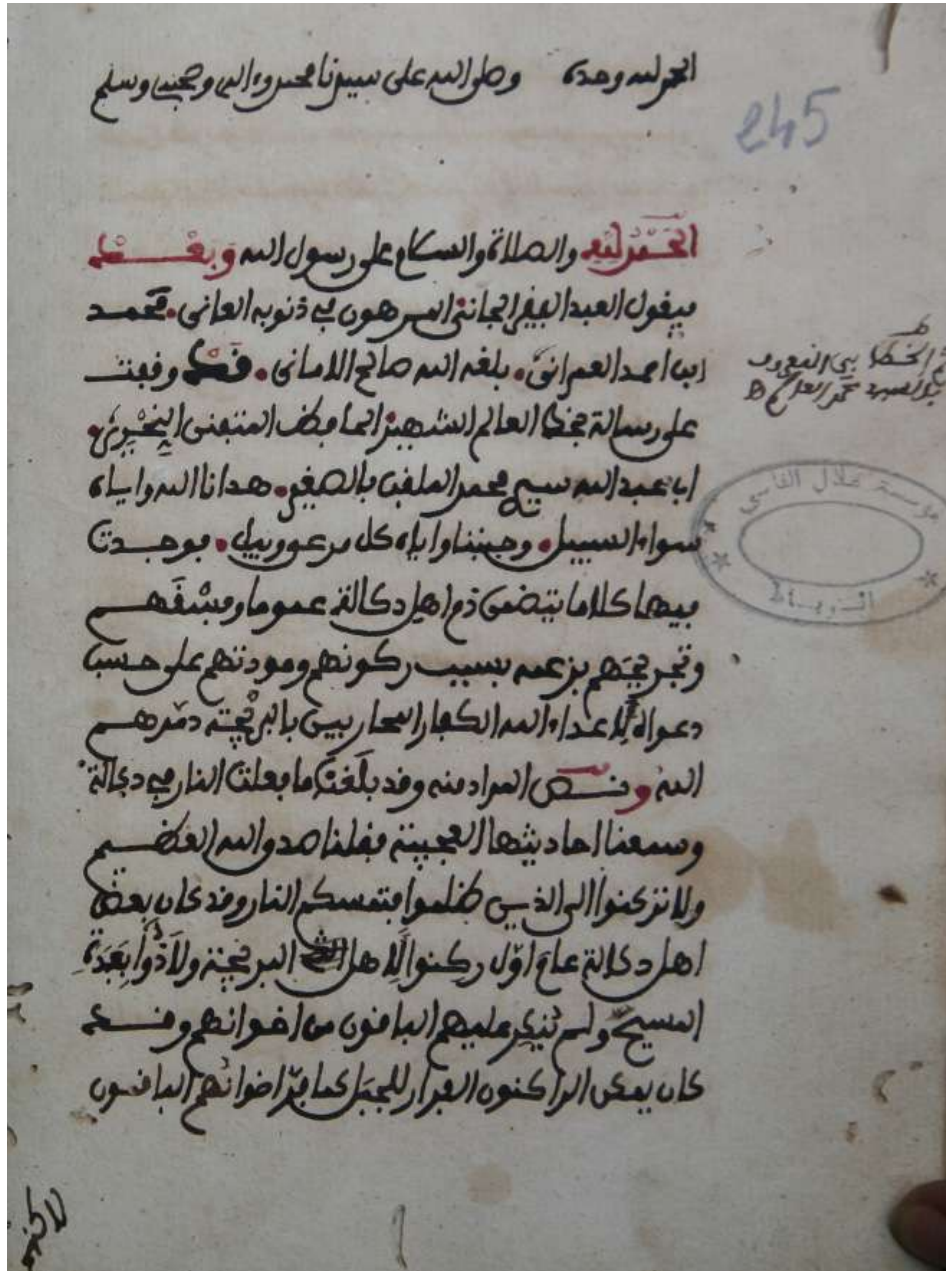 الحمد لله وحده وصلى الله على سيدنا محمد وءاله وصحبه وسلم
245
الحمد لله والصلاة والسلام على رسول الله وبعد
فيقول العبد الفقير الجانى المرهون في ذنوبه العانى. محمد
ابن احمد العمرانى. بلغه الله صالح الامانى. فقد وقفت
على رسالة العالم الشهير الحافظ المتفنى النحرير.
ابى عبد الله سيدي محمد الملقب بالصغير. هدانا الله واياه
سواء السبيل. وجنبنا واياه كل مرعى وبيل. فوجدت
فيها كلاما يتضمن ذم اهل دكالة عموما وفسقهم
وتجريحهم بزعمه بسبب ركونهم ومودتهم على حسب
دعواه لاعداء الله الكفار المحاربين بالبريجة دمرهم
الله ونص المراد منه وقد بلغك ما فعلت النار في دكالة
وسمعنا احاديثها العجيبة فقلنا صدق الله العظيم
ولا تركنوا الى الذين ظلموا فتمسكم النار وقد كان بعض
اهل دكالة عام اول ركنوا لاهل البريجة ولاذوا بعبدة
المسيح ولم ينكر عليهم الباقون من اخوانهم وقد
كان يمكن الراكنون الفرار للجبل كما فر اخوانهم الباقون
لاكنه
مؤسسة علال الفاسي
الربـاط